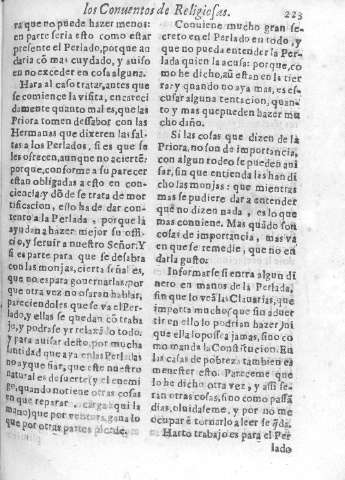 los Conuentos de Religiosas.
223
ra que no puede hazer menos:
en parte seria esto como estar
presente el Perlado, porque an
daria cō mas cuydado, y auiso
en no exceder en cosa alguna.
Hara al caso tratar, antes que
se comience la visita, encareci
damente quanto mal es, que las
Priora tomen dessabor con las
Hermanas que dixeren las fal-
tas a los Perlados, si es que se
les ofrecen, aunque no acierte:
porque, conforme a su parecer
estan obligadas a esto en con-
ciencia: y dōde se trata de mor
tificacion, esto ha de dar con-
tento a la Perlada, porque la
ayudan a hazer mejor su offi-
cio, y seruir a nuestro Señor: Y
si es parte para que se desabra
con las monjas, cierta señal es,
que no es para gouernarlas, por
que otra vez no osaran hablar,
pareciendoles que se va el Per-
lado, y ellas se quedan cō traba
jo, y podrase yr relaxādo todo:
y para auisar desto, por mucha
santidad que aya en las Perladas
no ay que fiar, que este nuestro
natural es de suerte, y el enemi
go, quando no tiene otras cosas
en que reparar, carga aqui la
mano, que por ventura gana lo
que por otras partes pierde.
Conuiene mucho gran se-
creto en el Perlado en todo, y
que no pueda entender la Per-
lada quien la acusa: porque, co
mo he dicho, aū estan en la tier
ra: y quando no aya mas, es es-
cusar alguna tentacion, quan-
to y mas que pueden hazer mu
cho daño.
Si las cosas que dizen de la
Priora, no son de importancia,
con algun rodeo se pueden aui
sar, sin que entienda las han di
cho las monjas: que mientras
mas se pudiere dar a entender
que no dizen nada, es lo que
mas conuiene. Mas quādo son
cosas de importancia, mas va
en que se remedie, que no en
darla gusto.
Informarse si entra algun di
nero en manos de la Perlada,
sin que lo veā las Clauarias, que
importa mucho, que sin aduer
tir en ello lo podrian hazer, ni
que ella lo possea jamas, sino co
mo manda la Constitucion. En
las casas de pobreza tambien es
menester esto. Pareceme que
lo he dicho otra vez, y assi se-
ran otras cosas, sino como passā
dias, oluidaseme, y por no me
ocupar ē tornarlo a leer se q̄da.
Harto trabajo es para el Per
lado